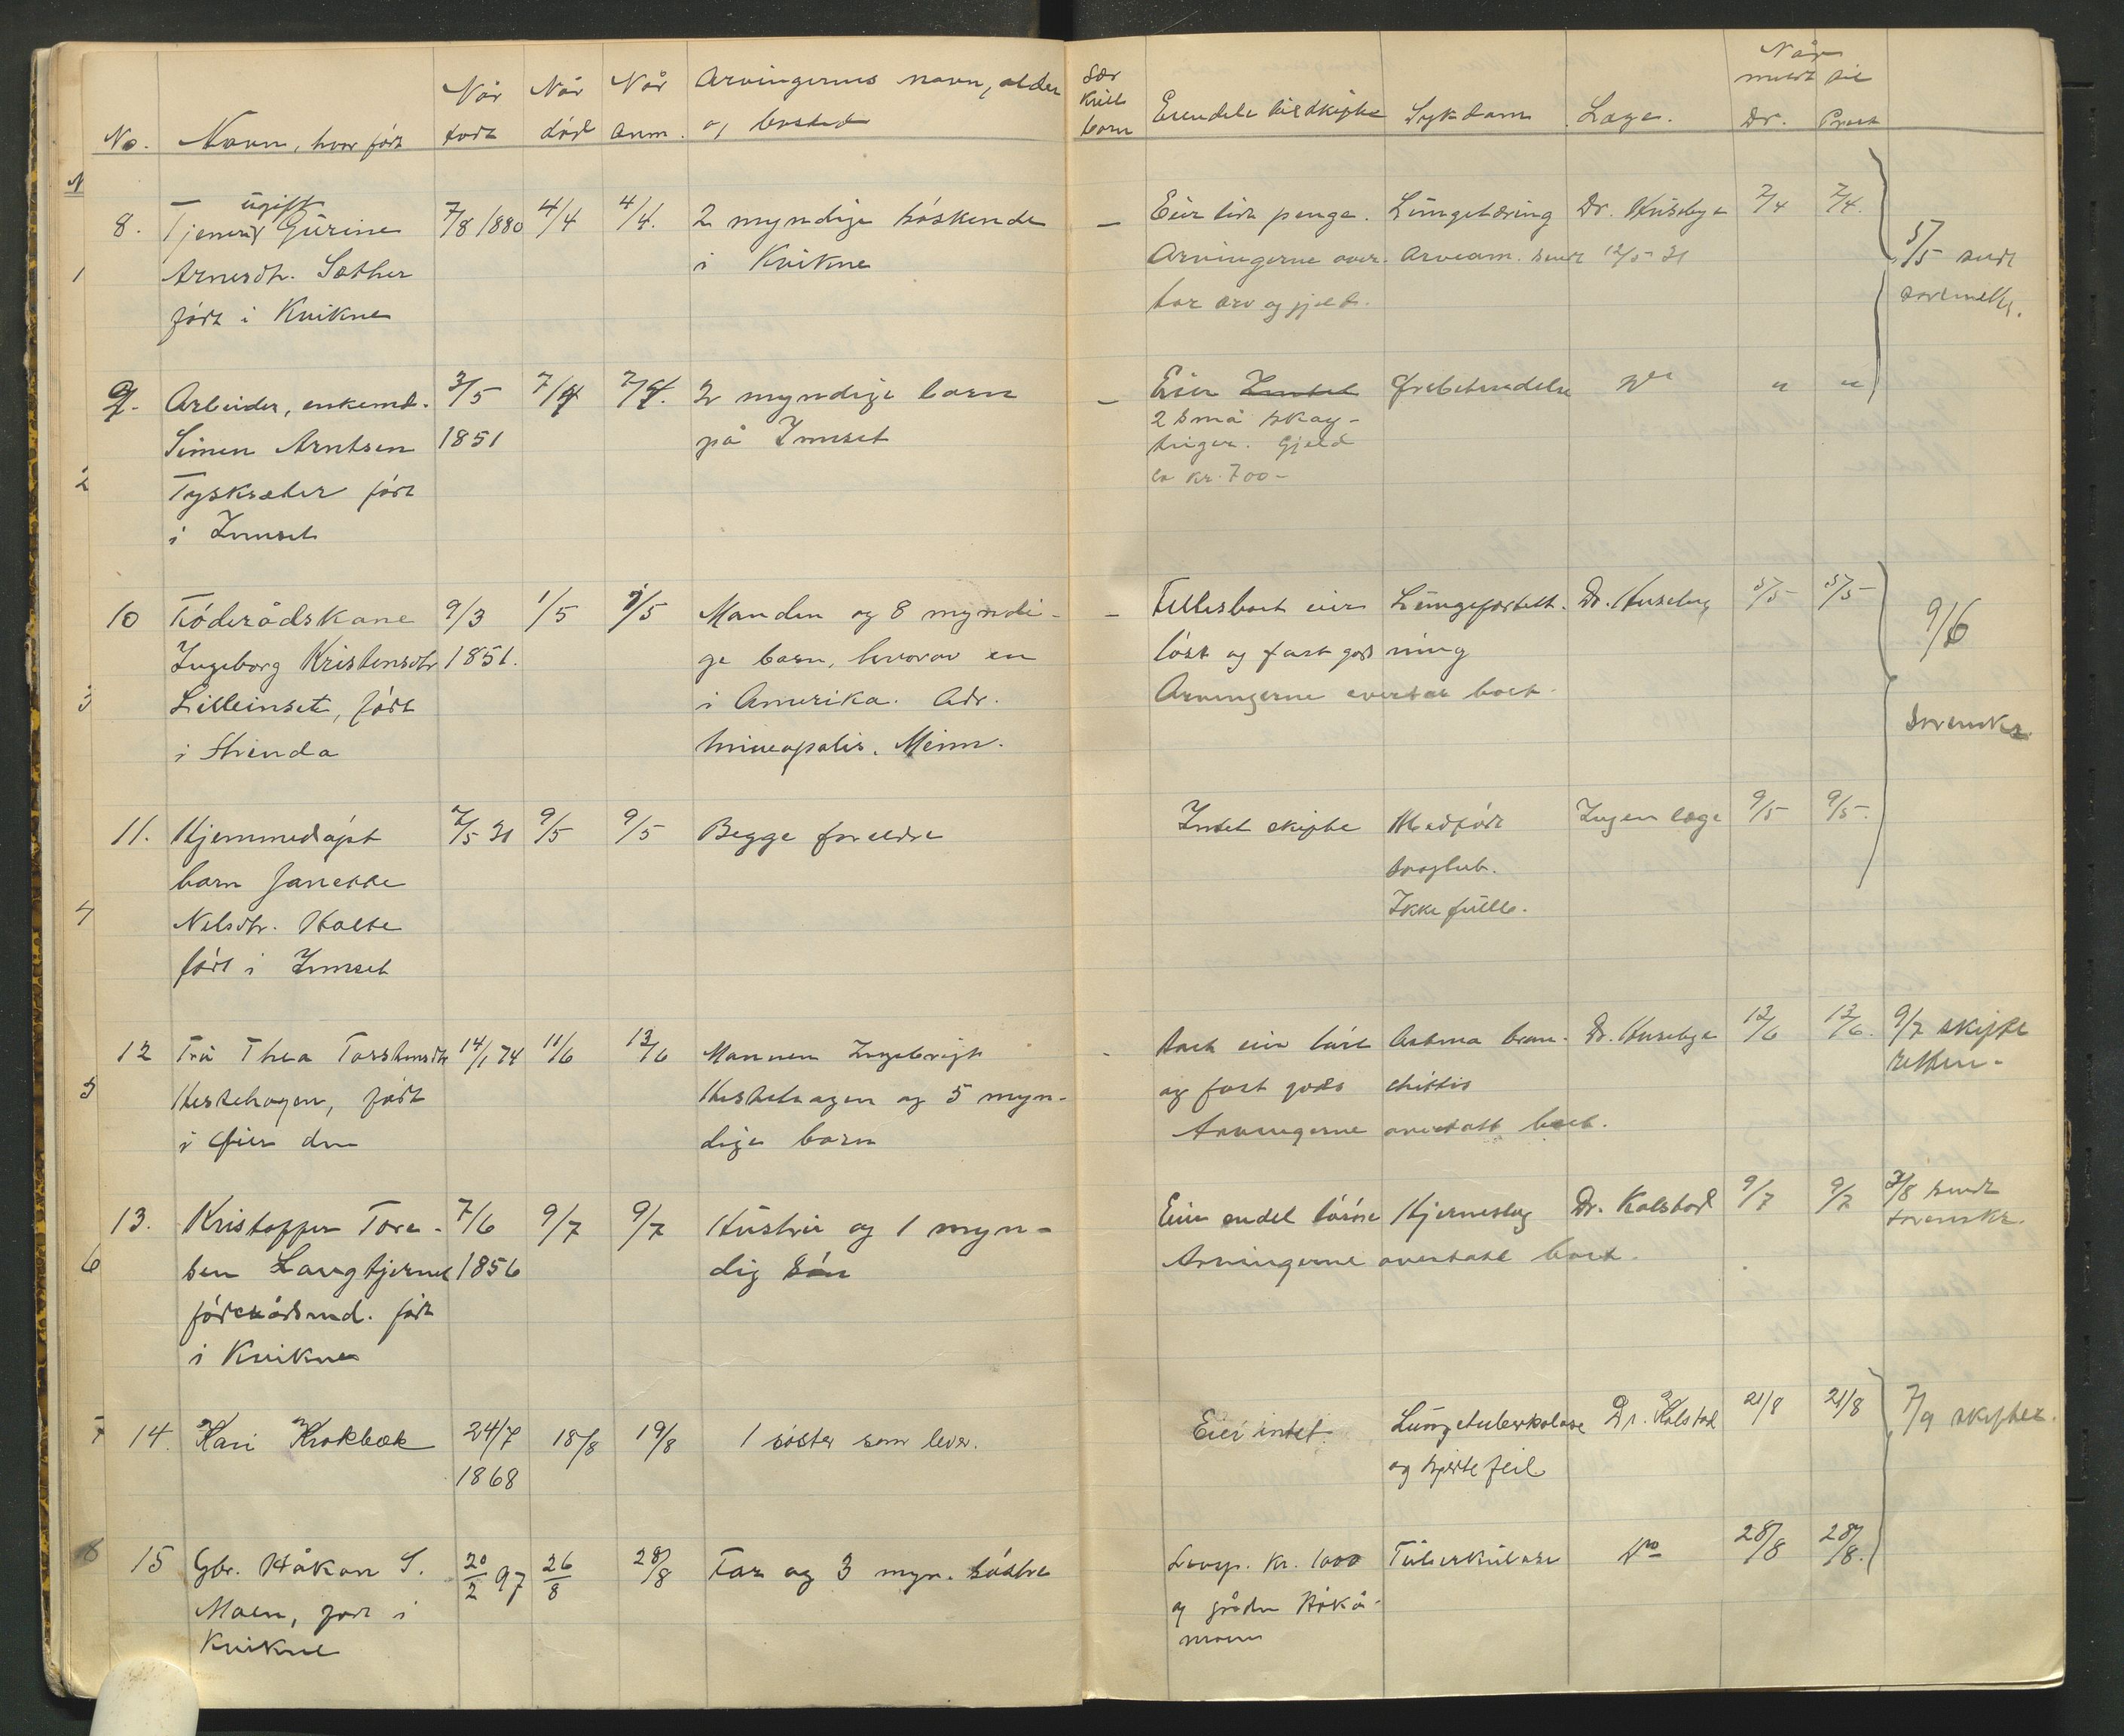 No. Navn, hvor født
Når født
Når død
Når anm.
Arvingernes navn, alder og bosted
Sær kull barn
Eiendele til skifte
Sykdom
Læge.
Når meldt til
Dr. Prest
N
8. ugift
Tjener Gurine 7/8 1880 4/4 4/4. 2 myndige søskende — Eier litt penge. Lungetæring Dr. Huseby 7/4 7/4.
1 Arnesdtr. Sæther i Kvikne Arvingerne over- Arveanm. sendt 12/5-31 5/5 sendt
født i Kvikne tar arv og gjeld. sorenskr.
9. Arbeider, enkemd. 3/5 7/4 7/4. 2 myndige barn — Eier Intet " "
Simen Arntsen 1851 på Innset 2 små skog-
2 Tysksæter født teiger. Gjeld
i Innset ca kr. 700-
10 Føderådskone 9/3 1/5 1/5 Manden og 8 myndi- — Fellesboet eier Lungebetendt. Dr. Huseby 5/5 5/5 9/6
Ingeborg Kristensdtr 1851. ge barn, hvorav en løst og fast gods
3 Lilleinset, født i Amerika. Adr. Arvingerne overtar boet. sorenskr.
i Strinda Mineapolis, Minn.
11. Hjemmedøpt 7/5 31 9/5 9/5 Begge foreldre Intet skifte Medfødt Ingen læge 9/5 9/5.
barn Janette svaghet.
4 Nilsdtr. Holte Ikke fullb.
født i Innset
12 Fru Thea Torstensdtr 14/1 74 11/6 13/6 Mannen Ingebrigt - Boet eier løst Astma bron- Dr. Huseby 13/6 13/6. 9/7 skifte
5 Hestehagen, født Hestehagen og 5 myn- og fast gods chittis retten.
dige barn Arvingerne overtatt boet.
13. Kristoffer Tore- 7/6 9/7 9/7 Hustru og 1 myn- Eier endel løsøre Hjerneslag Dr. Kolstad 9/7 9/7 3/8 sendt
6 sen Langtjernet 1856 dig søn Arvingerne overtatt boet. sorenskr.
føderådsmd. født
i Kvikne
7 14. Kari Krokbæk 24/7 18/8 19/8 1 søster som lever. Eier intet. Lungetuberkolose Dr. Kolstad 21/8 21/8 7/9 skifter.
1868 og hjertefeil
8 15 Gbr. Håkon S. 20/2 97 26/8 28/8 Far og 3 myn. søstre Løsø. kr. 1000 Tuberkulose Do 28/8 28/8.
Moen, født i og gården Håkå-
Kvikne moen